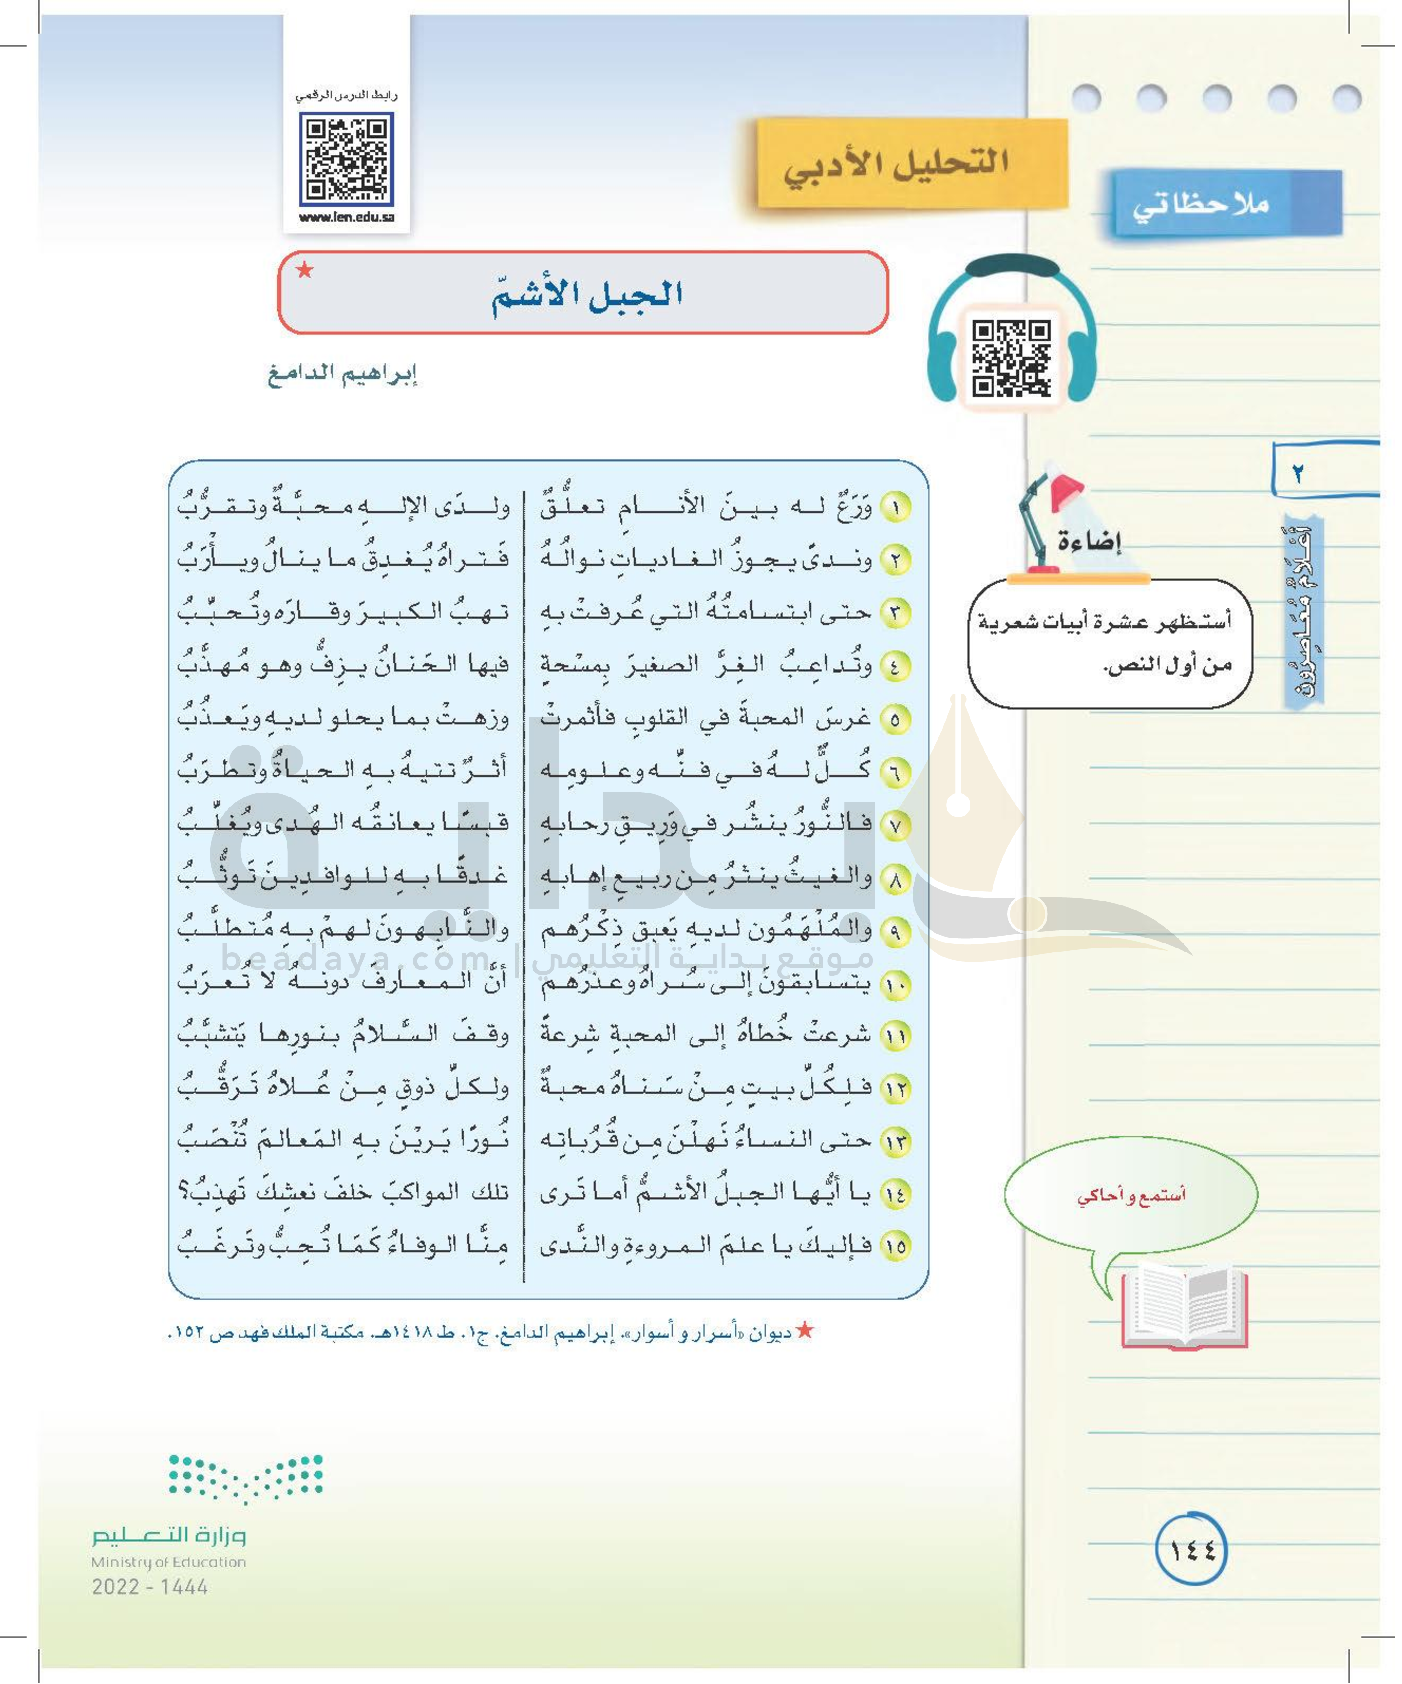 رابط الدرس الرقمي
www.ien.edu.sa
التحليل الأدبي
ملاحظاتي
الجبل الأشمّ
إبراهيم الدامغ
٢
أَعْلَامٌ مُعَاصِرُون
إضاءة
أستظهر عشرة أبيات شعرية
من أول النص.
١ وَرَعٌ له بينَ الأنامِ تعلُّقٌ ولدَى الإلهِ محبَّةٌ وتقرُّبُ
٢ وندىً يجوزُ الغادياتِ نوالُهُ فَتراهُ يُغدِقُ ما ينالُ ويأْرَبُ
٣ حتى ابتسامتُهُ التي عُرفتْ بهِ تهبُ الكبيرَ وقارَه وتُحبِّبُ
٤ وتُداعِبُ الغِرَّ الصغيرَ بِمسْحةٍ فيها الحَنانُ يزِفُّ وهو مُهذَّبُ
٥ غرسَ المحبةَ في القلوبِ فأثمرتْ وزهتْ بما يحلو لديهِ ويَعذُبُ
٦ كُلٌّ لهُ في فنِّه وعلومِه أثرٌ تتيهُ بهِ الحياةُ وتطرَبُ
٧ فالنُّورُ ينشُر في وَرِيقِ رحابهِ قبسًا يعانقُه الهُدى ويُغلِّبُ
٨ والغيثُ ينثرُ مِن ربيعِ إهابهِ غدقًا بهِ للوافدِينَ تَوثُّبُ
٩ والمُلْهَمُون لديهِ يَعبق ذِكْرُهم والنَّابِهونَ لهمْ بهِ مُتطلَّبُ
بداية
موقع بداية التعليمي | beadaya.com
١٠ يتسابقونَ إلى سُراهُ وعذرُهم أنَّ المعارفَ دونهُ لا تُعرَبُ
١١ شرعتْ خُطاهُ إلى المحبةِ شِرعةً وقفَ السَّلامُ بنورِها يَتشبَّبُ
١٢ فلِكُلِّ بيتٍ مِنْ سَناهُ محبةٌ ولكلِّ ذوقٍ مِنْ عُلاهُ تَرَقُّبُ
١٣ حتى النساءُ نَهلْنَ مِن قُرُباتِه نُورًا يَريْنَ بهِ المَعالمَ تُنْصَبُ
١٤ يا أيُّها الجبلُ الأشمُّ أما تَرى تلك المواكبَ خلفَ نعشِكَ تَهذِبُ؟
١٥ فإليكَ يا علمَ المروءةِ والنَّدى مِنَّا الوفاءُ كَمَا تُحِبُّ وتَرغَبُ
أستمع وأحاكي
★ ديوان «أسرار و أسوار». إبراهيم الدامغ. ج١. ط ١٤١٨هـ. مكتبة الملك فهد ص ١٥٢.
وزارة التعليم
Ministry of Education
2022 - 1444
١٤٤